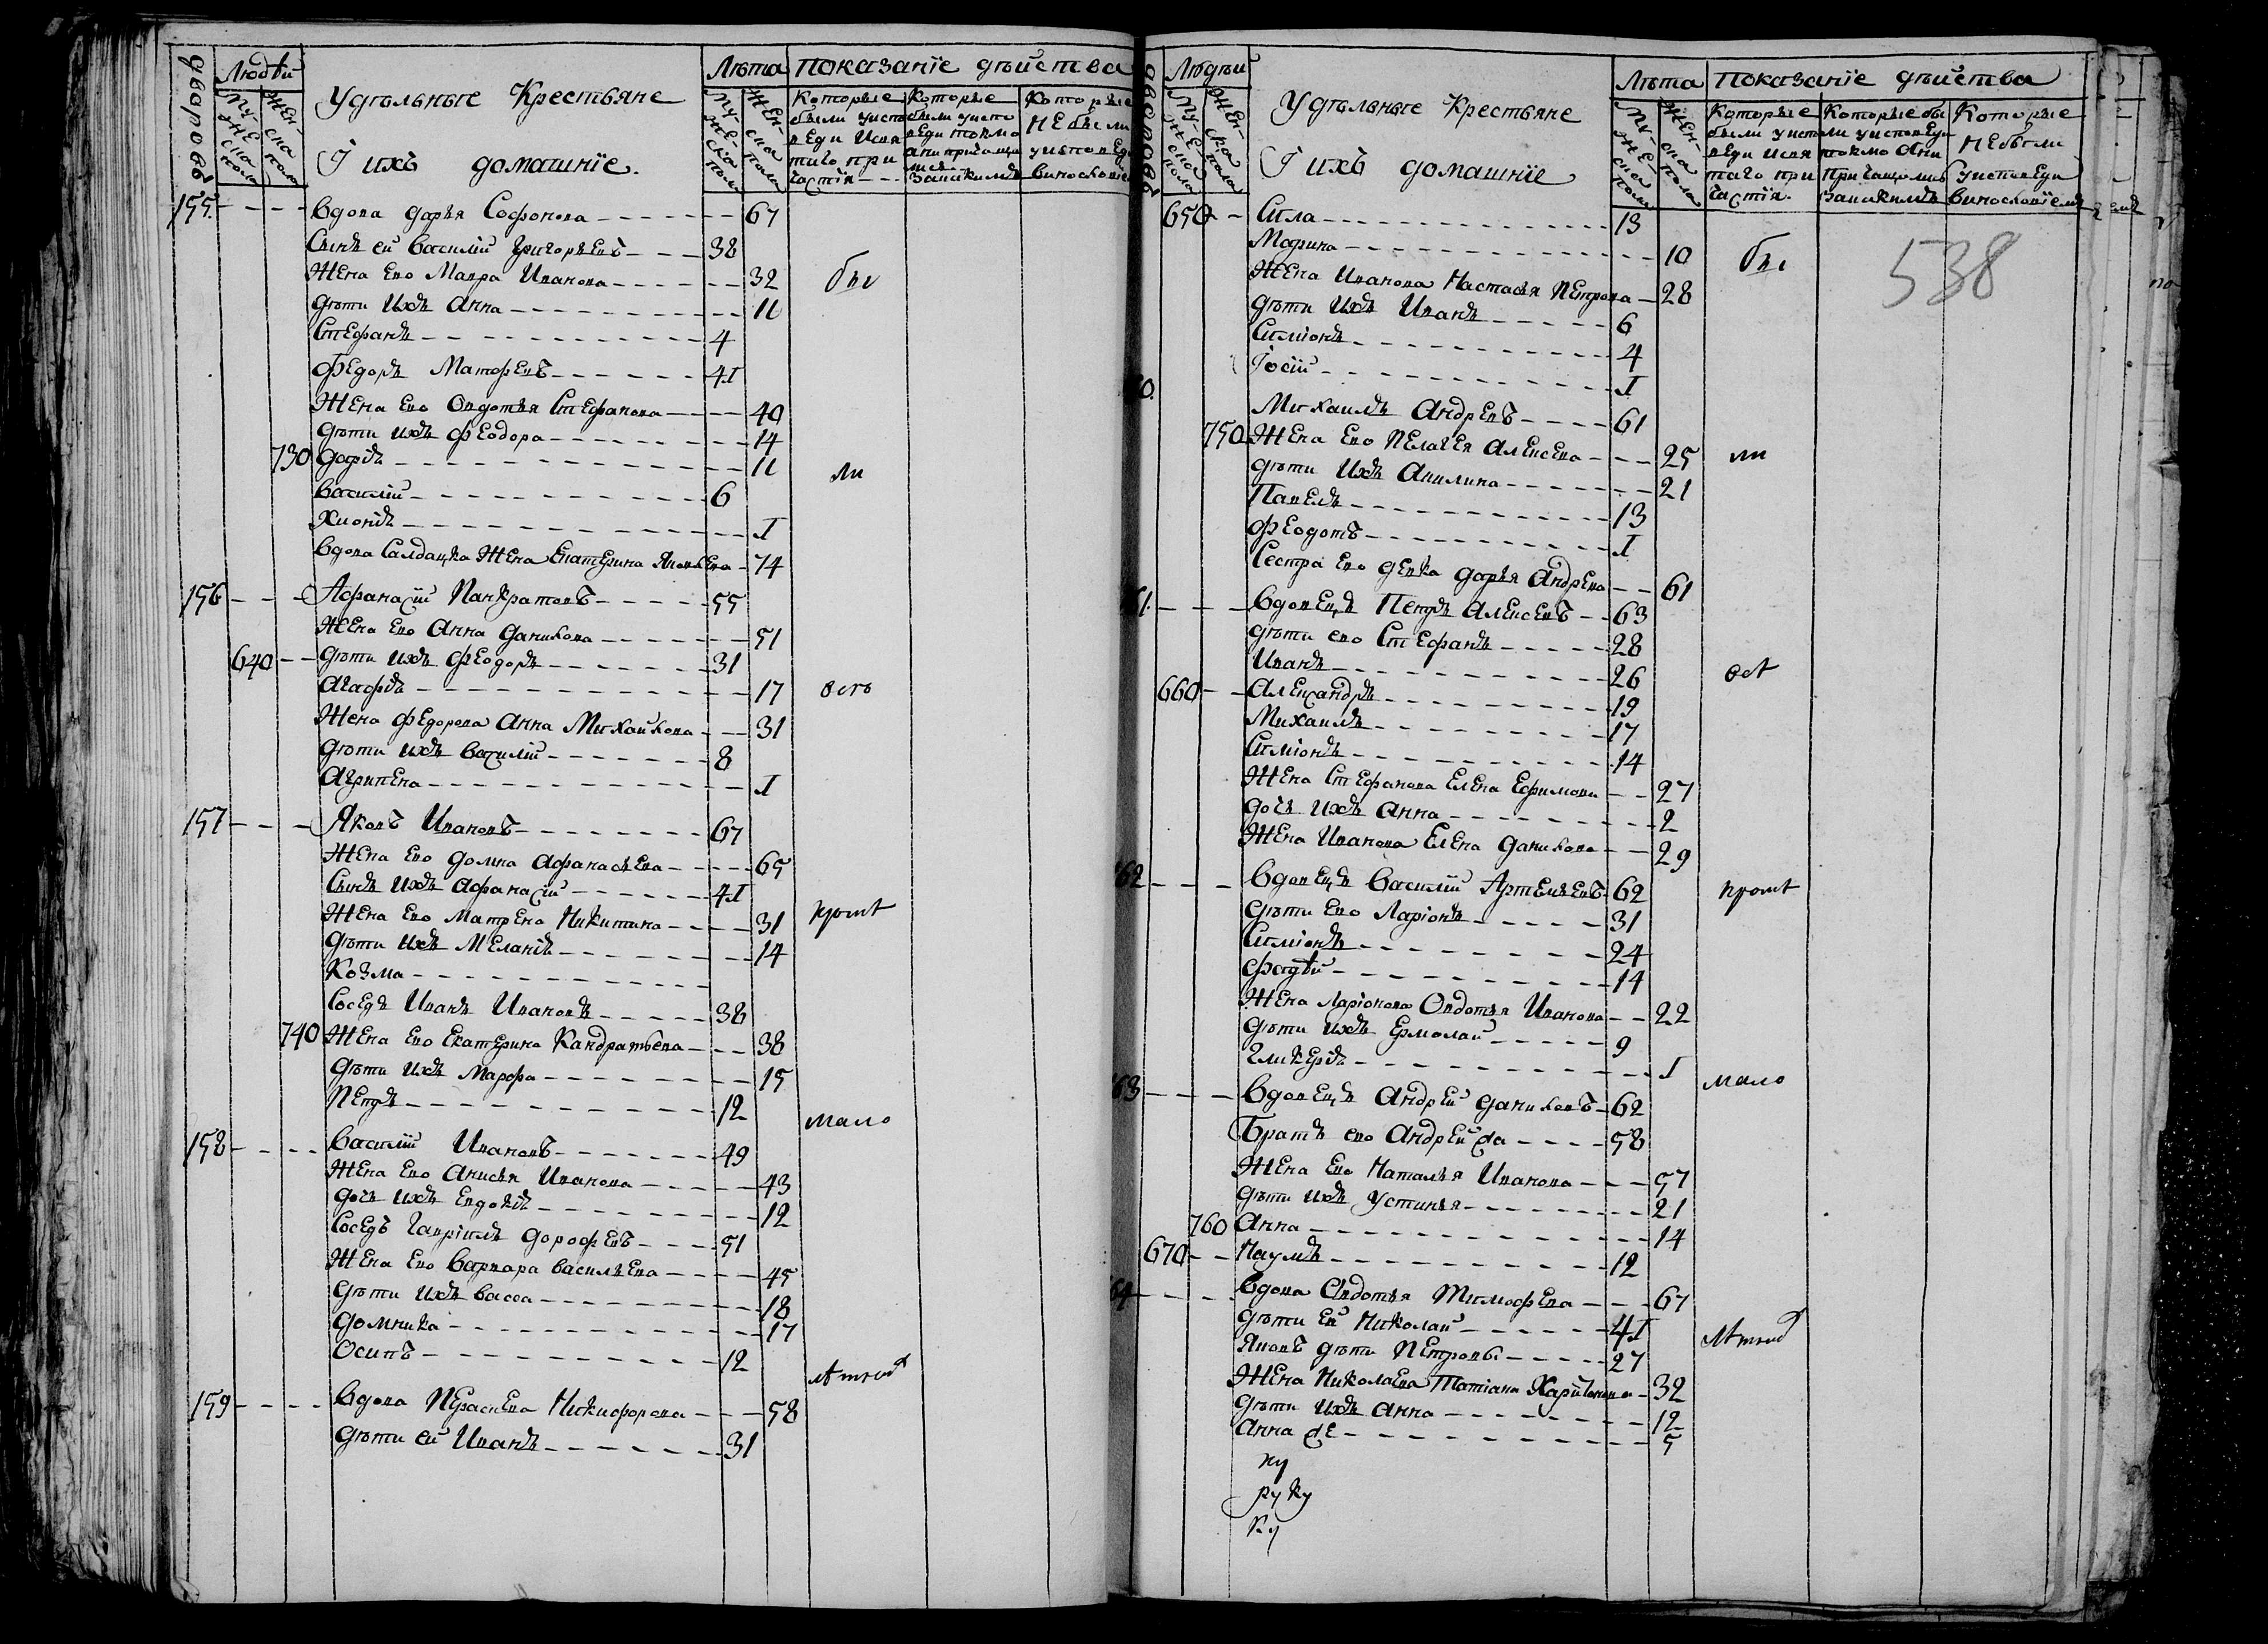 дворовъ
Людѣй
Мужеска пола
Женска пола
Удѣльныѣ Крестьяне
І ихъ домашніе.
Лѣта
Мужеска пола
Женска пола
показаніе дѣйства
Которые были у исповеди и святаго причастія
Которые были у исповеди токмо а не причащались
Которые не были у исповеди
155 Вдова Дарья Софонова 67
Сынъ ей Василій Григорьевъ 38
Жена ево Мавра Иванова 32 бы
Дѣти ихъ Анна 11
Стефанъ 4
Федоръ Матфевъ 41
Жена ево Овдотья Стефанова 40
Дѣти ихъ Феодора 14
730 Дафіѣ 11 ли
Василій 6
Хионіѣ 1
Вдова Салдацка жена Екатерина Яковлева 74
156 Афанасій Панкратовъ 55
Жена ево Анна Данилова 51
640 Дѣти ихъ Феодоръ 31
Агафіѣ 17
Жена Федорова Анна Михайлова 31
Дѣти ихъ Василій 8
Агрипена 1
157 Яковъ Ивановъ 67
Жена ево Домна Афанасьева 65
Сынъ ихъ Афанасій 41
Жена ево Матрена Никитина 31
Дѣти ихъ Меланіѣ 14
Козма
Соседъ Иванъ Ивановъ 38
740 Жена ево Екатерина Кандратьева 38
Дѣти ихъ Марфа 15
Петръ 12 мало
158 Василій Ивановъ 49
Жена ево Анисья Иванова 43
Дочь ихъ Евдокіѣ 12
Соседъ Гавріилъ Дорофевъ 51
Жена ево Варвара Васильева 45
Дѣти ихъ Васса 18
Домника 17
Осипъ 12
159 Вдова Парасковья Никифорова 58
Дѣти ей Иванъ 31
дворовъ
Людѣй
Мужеска пола
Женска пола
Удѣльныѣ Крестьяне
І ихъ домашніе
Лѣта
Мужеска пола
Женска пола
показаніе дѣйства
Которые были у исповеди и святаго причастія.
Которые были у исповеди токмо а не причащались
Которые не были у исповеди
650 Сила 13
Марина 10 бы
538
Жена Иванова Настасья Петрова 28
Дѣти ихъ Иванъ 6
Симіонъ 4
Іосій 1
Михаилъ Андревъ 61
750 Жена ево Пелагея Алексева 25 ли
Дѣти ихъ Акилина 21
Павелъ 13
Феодотъ 1
Сестра ево девка Дарья Андрева 61
61 Вдовецъ Петръ Алексевъ 63
Дѣти ево Стефанъ 28
Иванъ 26
660 Александръ 19
Михаилъ 17
Симіонъ 14
Жена Стефанова Елена Ефимова 27
Дочь ихъ Анна 2
Жена Иванова Елена Данилова 29
62 Вдовецъ Василій Артемьевъ 62
Дѣти ево Ларіонъ 31
Симіонъ 24
Фадѣй 14
Жена Ларіонова Овдотья Иванова 22
Дѣти ихъ Ермолай 9
Гликеріѣ 1
мало
63 Вдовецъ Андрей Даниловъ 62
Братъ ево Андрей же 58
Жена ево Наталья Иванова 57
Дѣти ихъ Устинья 21
760 Анна 14
670 Наумъ 12
64 Вдова Овдотья Тимофева 67
Дѣти ей Николай 41
Яковъ дѣти Петровы 27
Жена Николаева Татіана Харитонова 32
Дѣти ихъ Анна 12
Анна же 5
ку
руку
ку